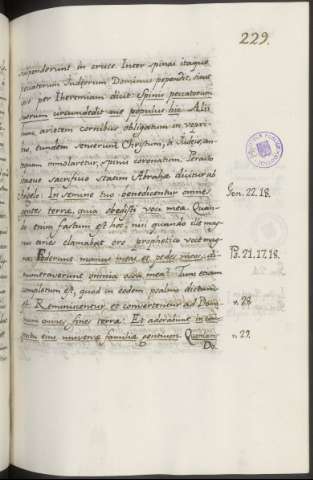 229.
suspenderunt in cruce. Inter spinas itaque
peccatorum Judæorum Dominus pependit, sicut
per Hieremiam dicit: Spinis peccatorum
suorum circumdedit me populus hic. Alii
arietem cornibus obligatum in vepri
bus, eundem senserunt Christum, à Judæis, an
tequam immolaretur, spinis coronatum. Peracto
itaque sacrificio statim Abrahæ dicitur ab
Angelo: In semine tuo benedicentur omnes
gentes terræ, quia obedisti voci meæ. Quan
do enim factum est hoc, nisi quando ille mag
nus aries clamabat ore prophetico voce
Foderunt manus meas et pedes meos, di
numeraverunt omnia ossa mea? Tunc etiam
completum est, quod in eodem psalmo dictum
est: Reminiscentur et convertentur ad Domi
num omnes fines terræ: Et adorabunt in cons
pectu ejus universæ familiæ gentium. Quoniam
Gen. 22.18.
Ps. 21.17.18.
v. 28.
v. 29.